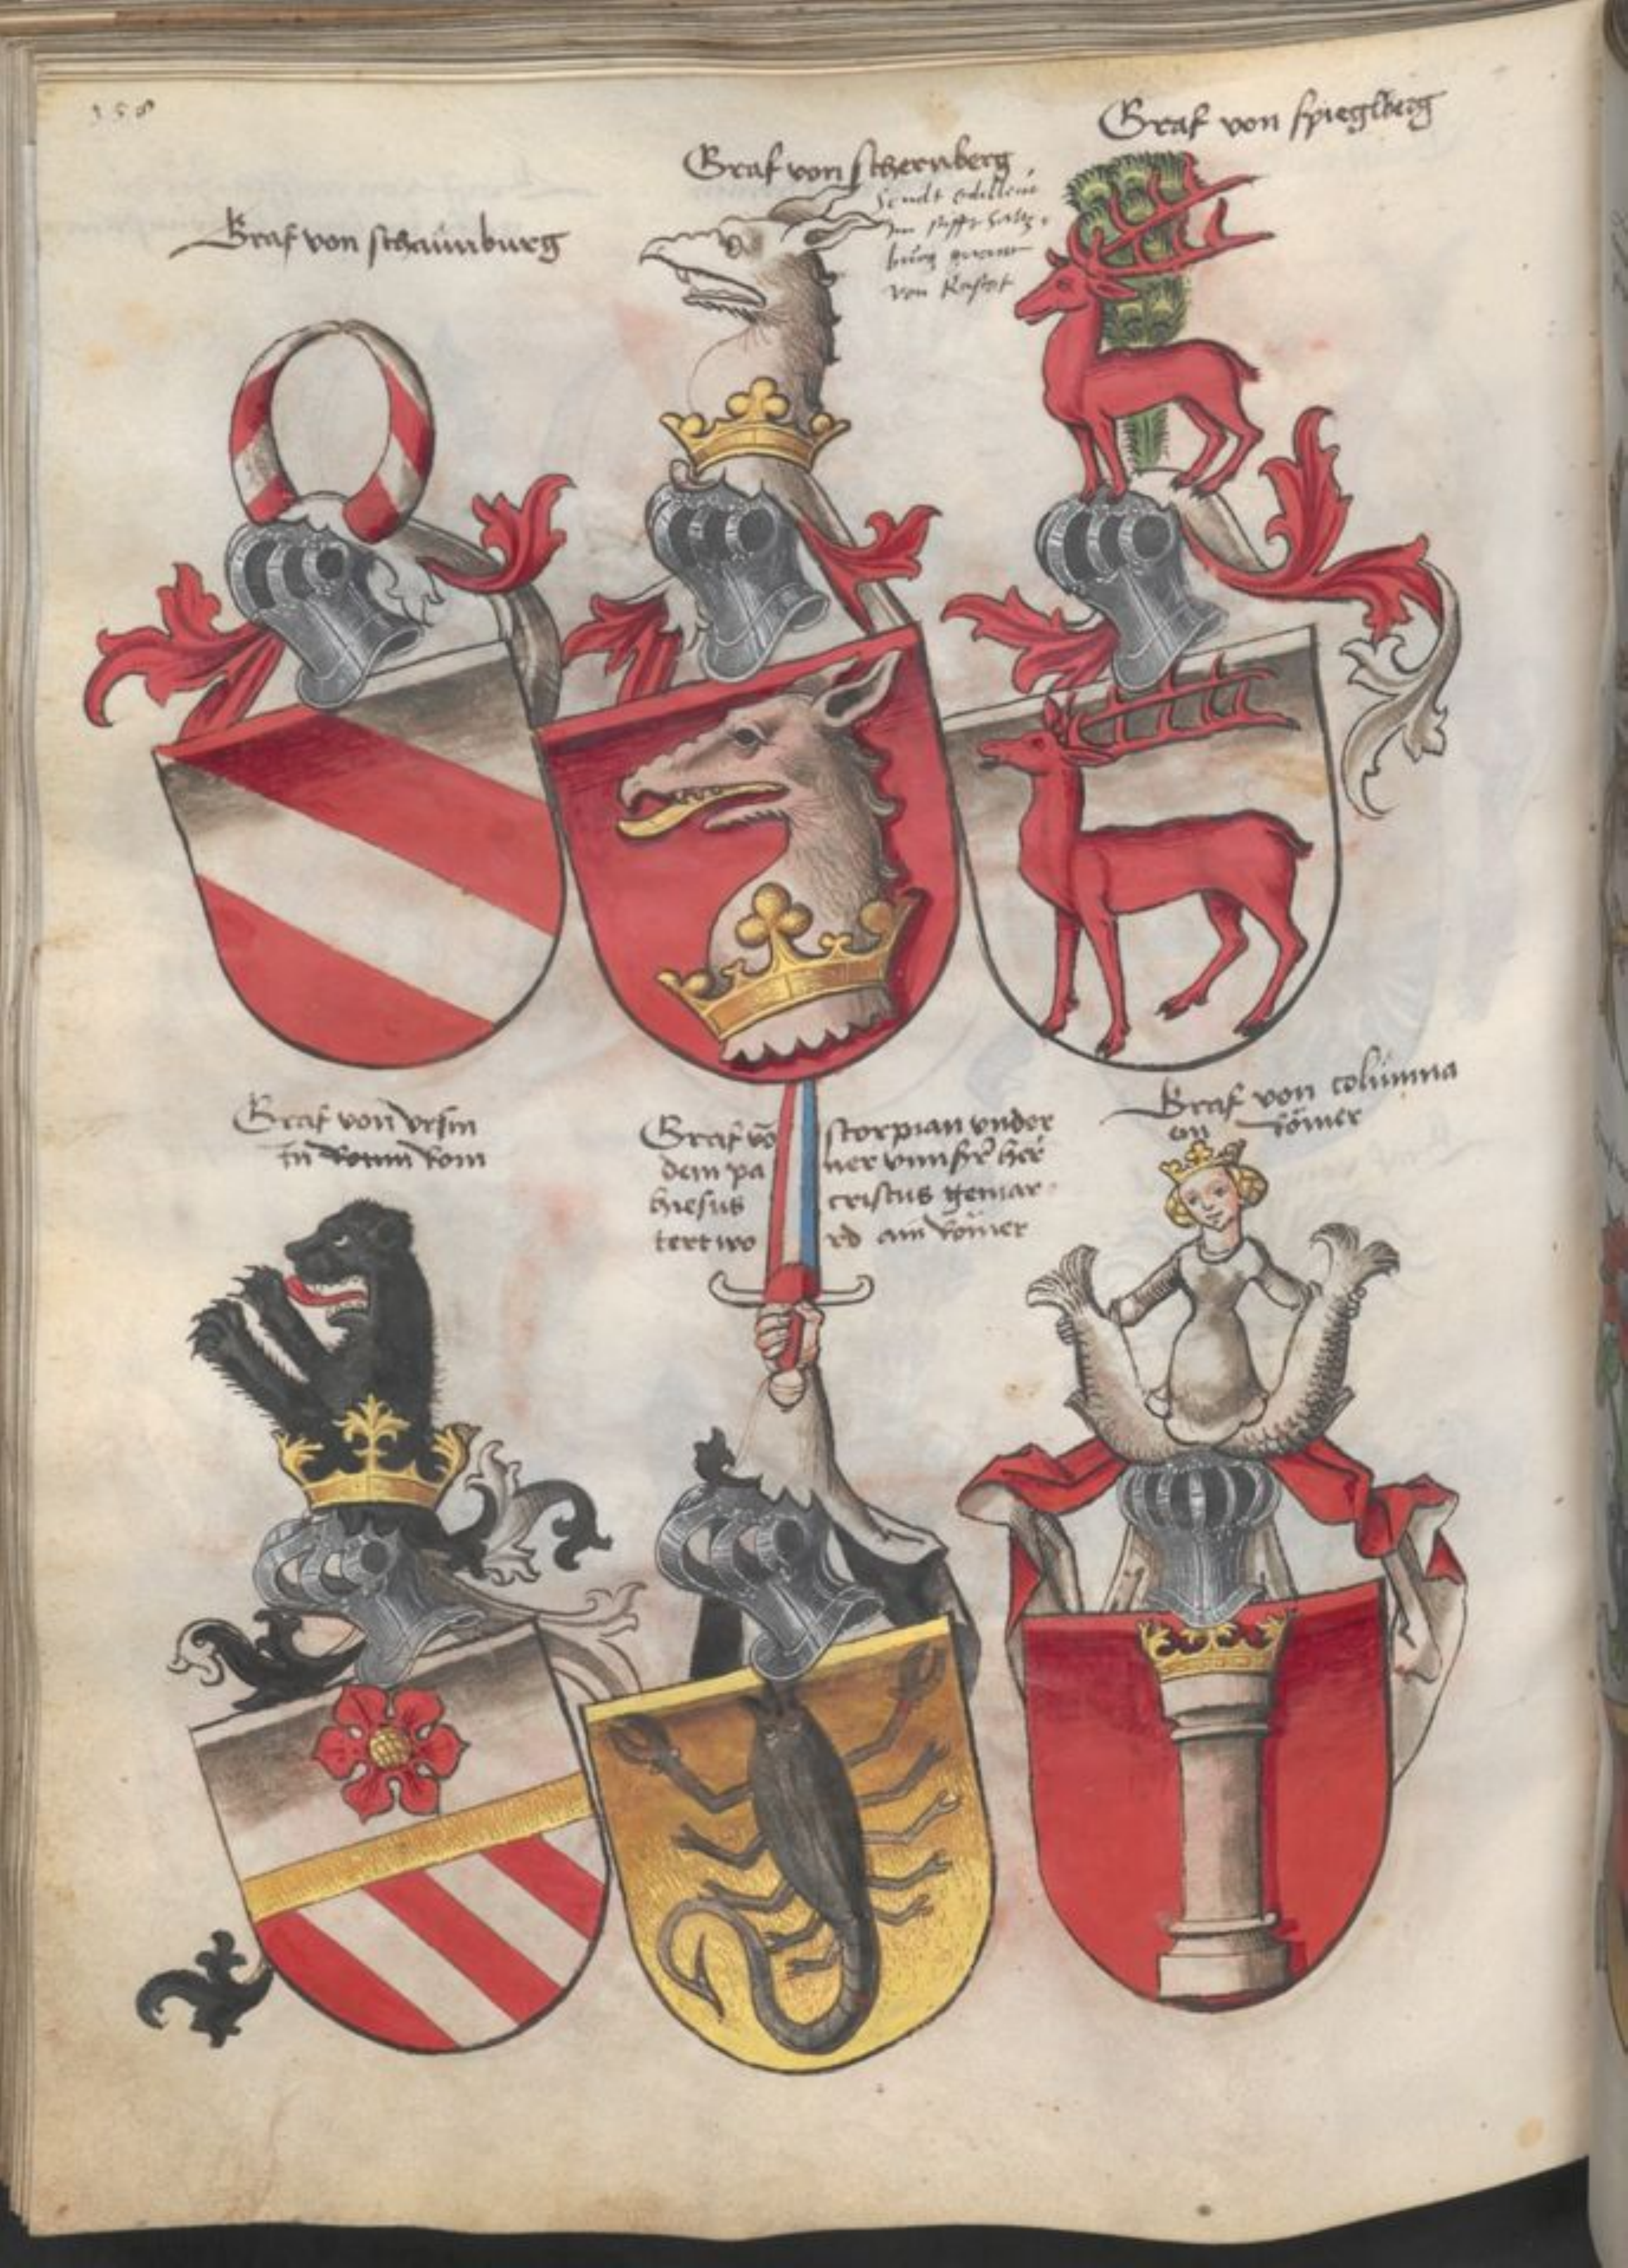 158
Graf von schaunburg
Graf von schernberg
Sendt edelleut
im stifft saltz-
burg genant
von
Graf von spieglberg
Graf von vrsin
in Rom
Graf vō scorpian vnder
dem pa ner vnnser her
hiesus cristus gemar-
tert wo rd ain römer
Graf von columna
ein römer